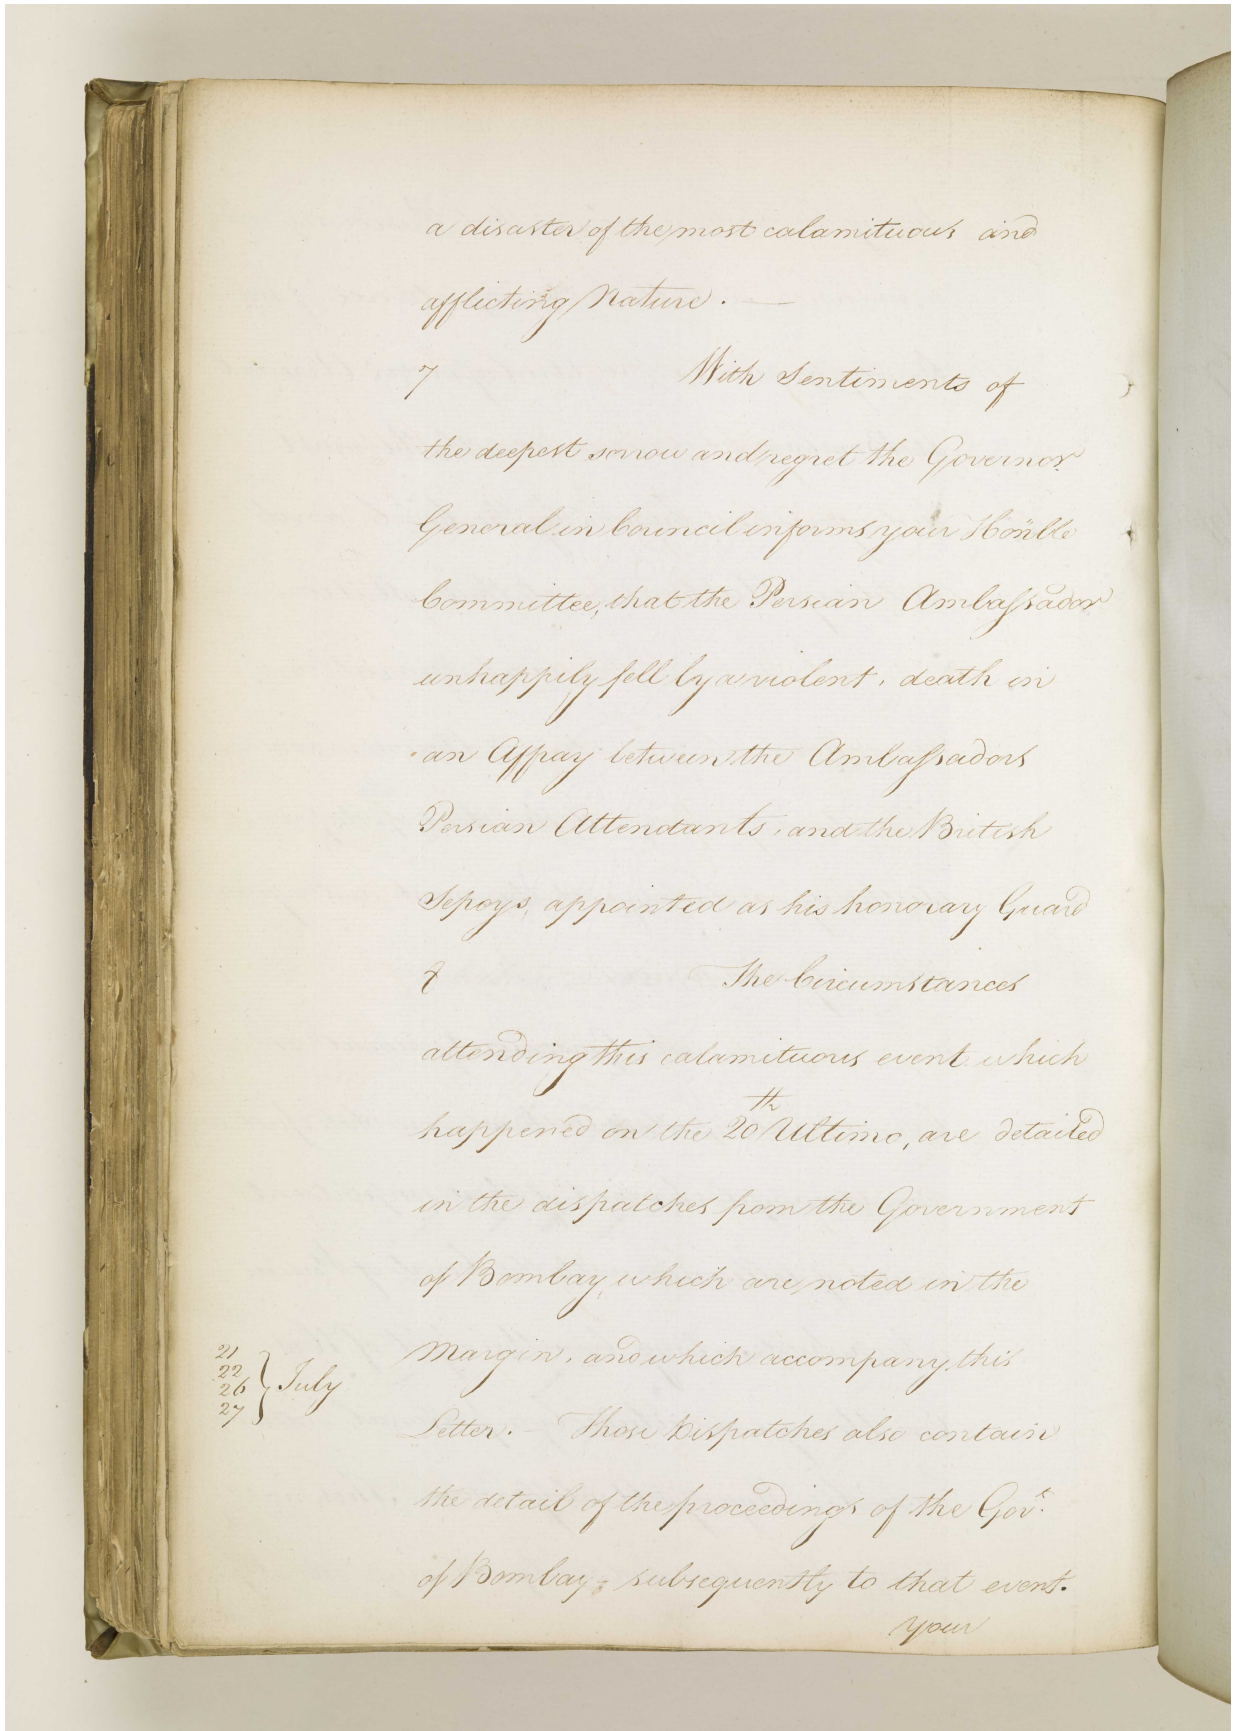 a disaster of the most calamituous and
afflicting Nature. —
7 With Sentiments of
the deepest sorrow and regret the Governor
General in Council informs your Hon'ble
Committee, that the Persian Ambassador
unhappily fell by a violent, death in
an Affray between the Ambassadors
Persian Attendants, and the British
Sepoys, appointed as his honorary Guard
8 The Circumstances
attending this calamituous event which
happened on the 20th Ultimo, are detailed
in the dispatches from the Government
of Bombay, which are noted in the
21
22
26
27
} July
Margin, and which accompany this
Letter. - Those Dispatches also contain
the detail of the proceedings of the Govt.
of Bombay, subsequently to that event.
your